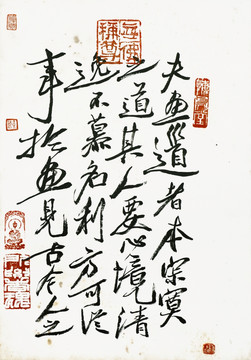 夫画道者本寂寞
之道其人要心境清
逸不慕名利方可从
事於画见古今人之